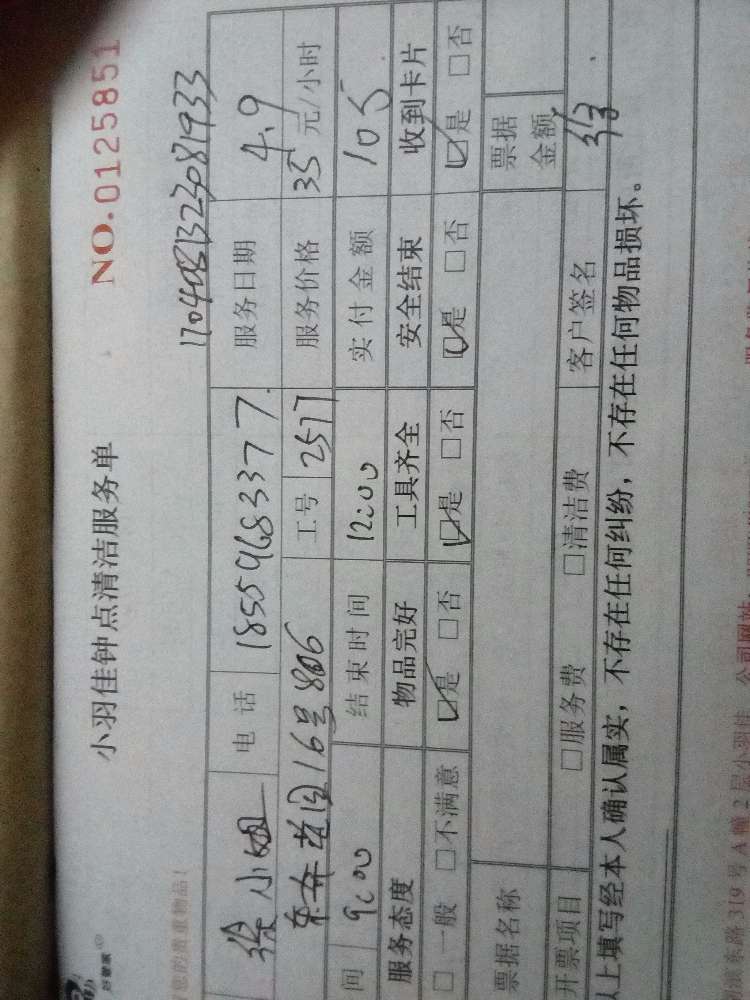 好管家
小羽佳钟点清洁服务单 NO.0125851
您的贵重物品！ 1704081323081933
徐小姐 电话 18559683377. 服务日期 4.9
16号806 工号 2577 服务价格 35元/小时
间 9:00 结束时间 12:00 实付金额 105
服务态度 物品完好 工具齐全 安全结束 收到卡片
□一般 □不满意 ☑是 □否 ☑是 □否 ☑是 □否 ☑是 □否
票据名称 票据金额
开票项目 □服务费 □清洁费 客户签名
以上填写经本人确认属实，不存在任何纠纷，不存在任何物品损坏。
东路319号A幢2层小羽佳 公司网站